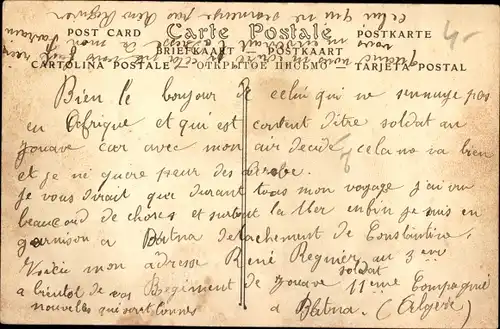 POST CARD Carte Postale POSTKARTE
BRIEFKAART POSTKAART
CARTOLINA POSTALE — ОТКРЫТОЕ ПИСЬМО — TARJETA POSTAL
4-
Bien le bonjour de celui qui ne sennuye pas
en Afrique et qui est content d'être soldat au
zouave car avec mon air decidé cela ne va bien
et je ne quere peur des arabe.
je vous dirait que durant tous mon voyage j'ai vu
beaucoup de choses et surtout la Mer enbin je suis en
garnison a Batna detachement de Constantine.
Voiciu mon adresse René Regniéry au 3eme
soldat
a bientot de vos Regiment de zouave 11eme Compagnie
nouvelles qui sont bonnes a Batna (Algérie)